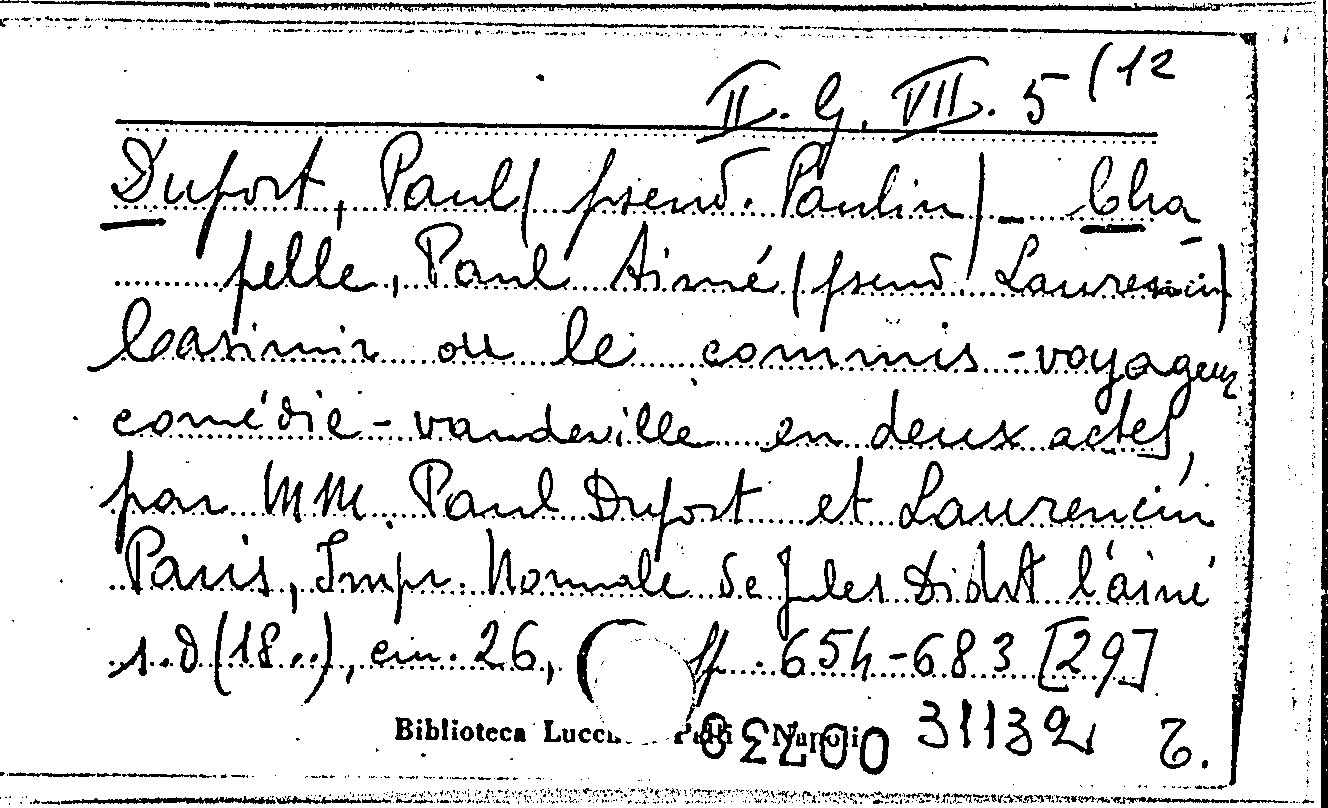 II. G. VII. 5 (12
Dufort, Paul (pseud. Paulin) - Cha
pelle, Paul Aimé (pseud Laurencin)
Casimir ou le commis-voyageur
comédie-vaudeville en deux actes,
par MM. Paul Dufort et Laurencin
Paris, Impr. Normale de Jules Didot l'ainé
s.d (18..), cm. 26, pp. 654-683 [29]
Biblioteca Lucc Palli Napoli 31132 T.